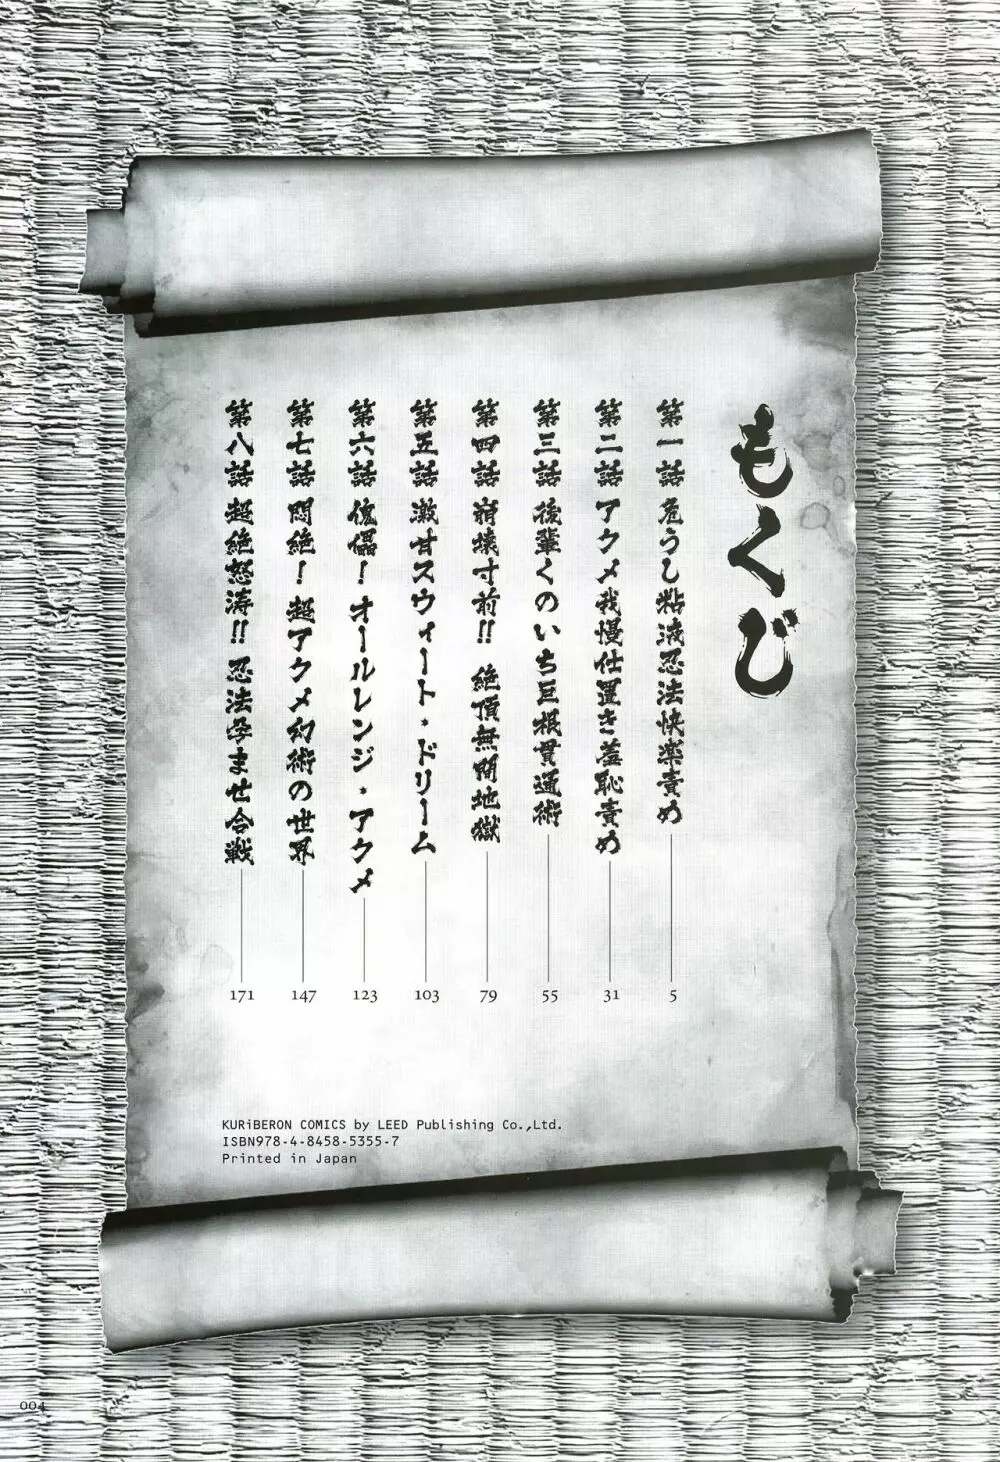 もくじ
第一話 危うし粘液忍法快楽責め 5
第二話 アクメ我慢仕置き羞恥責め 31
第三話 後輩くのいち巨根貫通術 55
第四話 崩壊寸前!! 絶頂無間地獄 79
第五話 激甘スウィート・ドリーム 103
第六話 傀儡! オールレンジ・アクメ 123
第七話 悶絶! 超アクメ幻術の世界 147
第八話 超絶怒涛!! 忍法孕ませ合戦 171
KURiBERON COMICS by LEED Publishing Co.,Ltd.
ISBN978-4-8458-5355-7
Printed in Japan
004